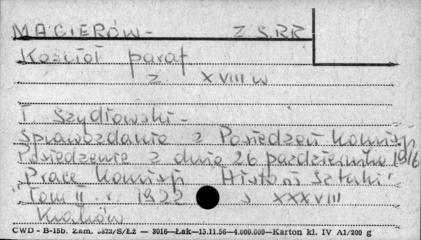 MACIERÓW - Z.S.R.R
Kościół paraf
z XVIII w
T Szydłowski -
Sprawozdania z Posiedzeń Komisji
Posiedzenie z dnia 26 października 1916
"Prace Komisji Historii Sztuki"
Tom II r. 1922 s XXXVIII
Kraków
CWD - B-15b. Zam. /S/Łż — 3016—Łak—15.11.56—4.000.000—Karton kl. IV A1/200 g